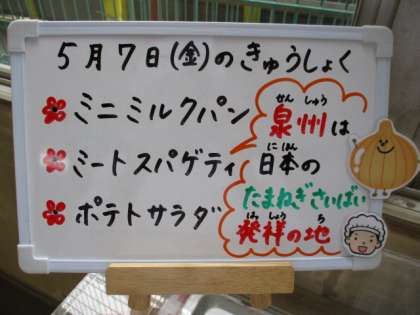 5月7日(金)のきゅうしょく
ミニミルクパン
ミートスパゲティ
ポテトサラダ
せんしゅう
泉州は
にほん
日本の
たまねぎさいばい
はっしょう ち
発祥の地